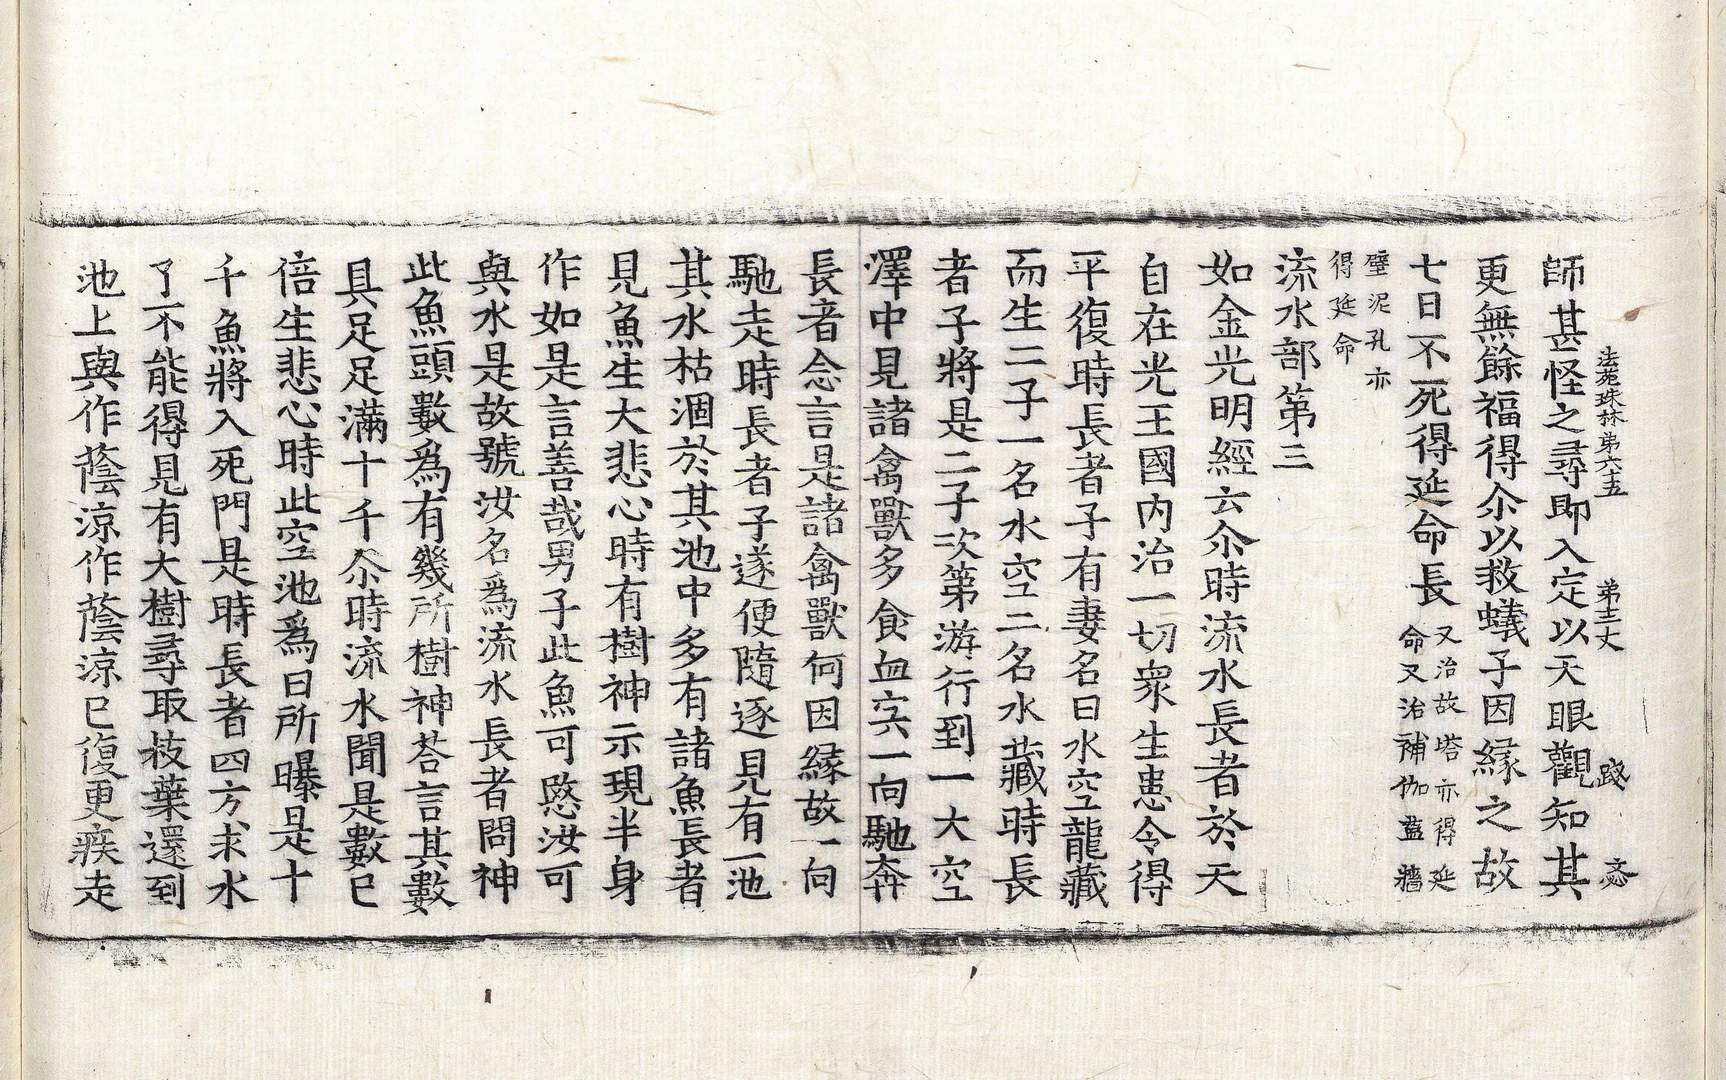 法苑珠林第六十五　第十三丈　踐　忞
師甚怪之尋即入定以天眼觀知其
更無餘福得尒以救蟻子因緣之故
七日不死得延命長又治故塔亦得延命又治補伽藍牆
壁泥孔亦得延命
流水部第三
如金光明經云尒時流水長者於天
自在光王國內治一切衆生患令得
平復時長者子有妻名曰水空龍藏
而生二子一名水空二名水藏時長
者子將是二子次第游行到一大空
澤中見諸禽獸多食血宍一向馳奔
長者念言是諸禽獸何因緣故一向
馳走時長者子遂便隨逐見有一池
其水枯涸於其池中多有諸魚長者
見魚生大悲心時有樹神示現半身
作如是言善哉男子此魚可愍汝可
與水是故號汝名爲流水長者問神
此魚頭數爲有幾所樹神荅言其數
具足足滿十千尒時流水聞是數已
倍生悲心時此空池爲日所曝是十
千魚將入死門是時長者四方求水
了不能得見有大樹尋取枝葉還到
池上與作蔭涼作蔭涼已復更疾走